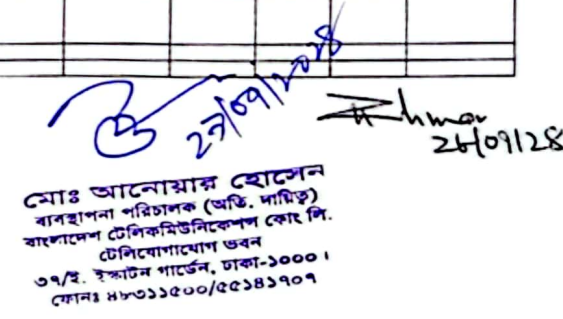 ২৭/০৭/২০২৪
২৮/০৭/২৪
মোঃ আনোয়ার হোসেন
ব্যবস্থাপনা পরিচালক (অতি. দায়িত্ব)
বাংলাদেশ টেলিকমিউনিকেশন্স কোং লি.
টেলিযোগাযোগ ভবন
৩৭/ই, ইস্কাটন গার্ডেন, ঢাকা-১০০০।
ফোনঃ ৪৮৩১১৫০০/৫৫১৪১৭০৭